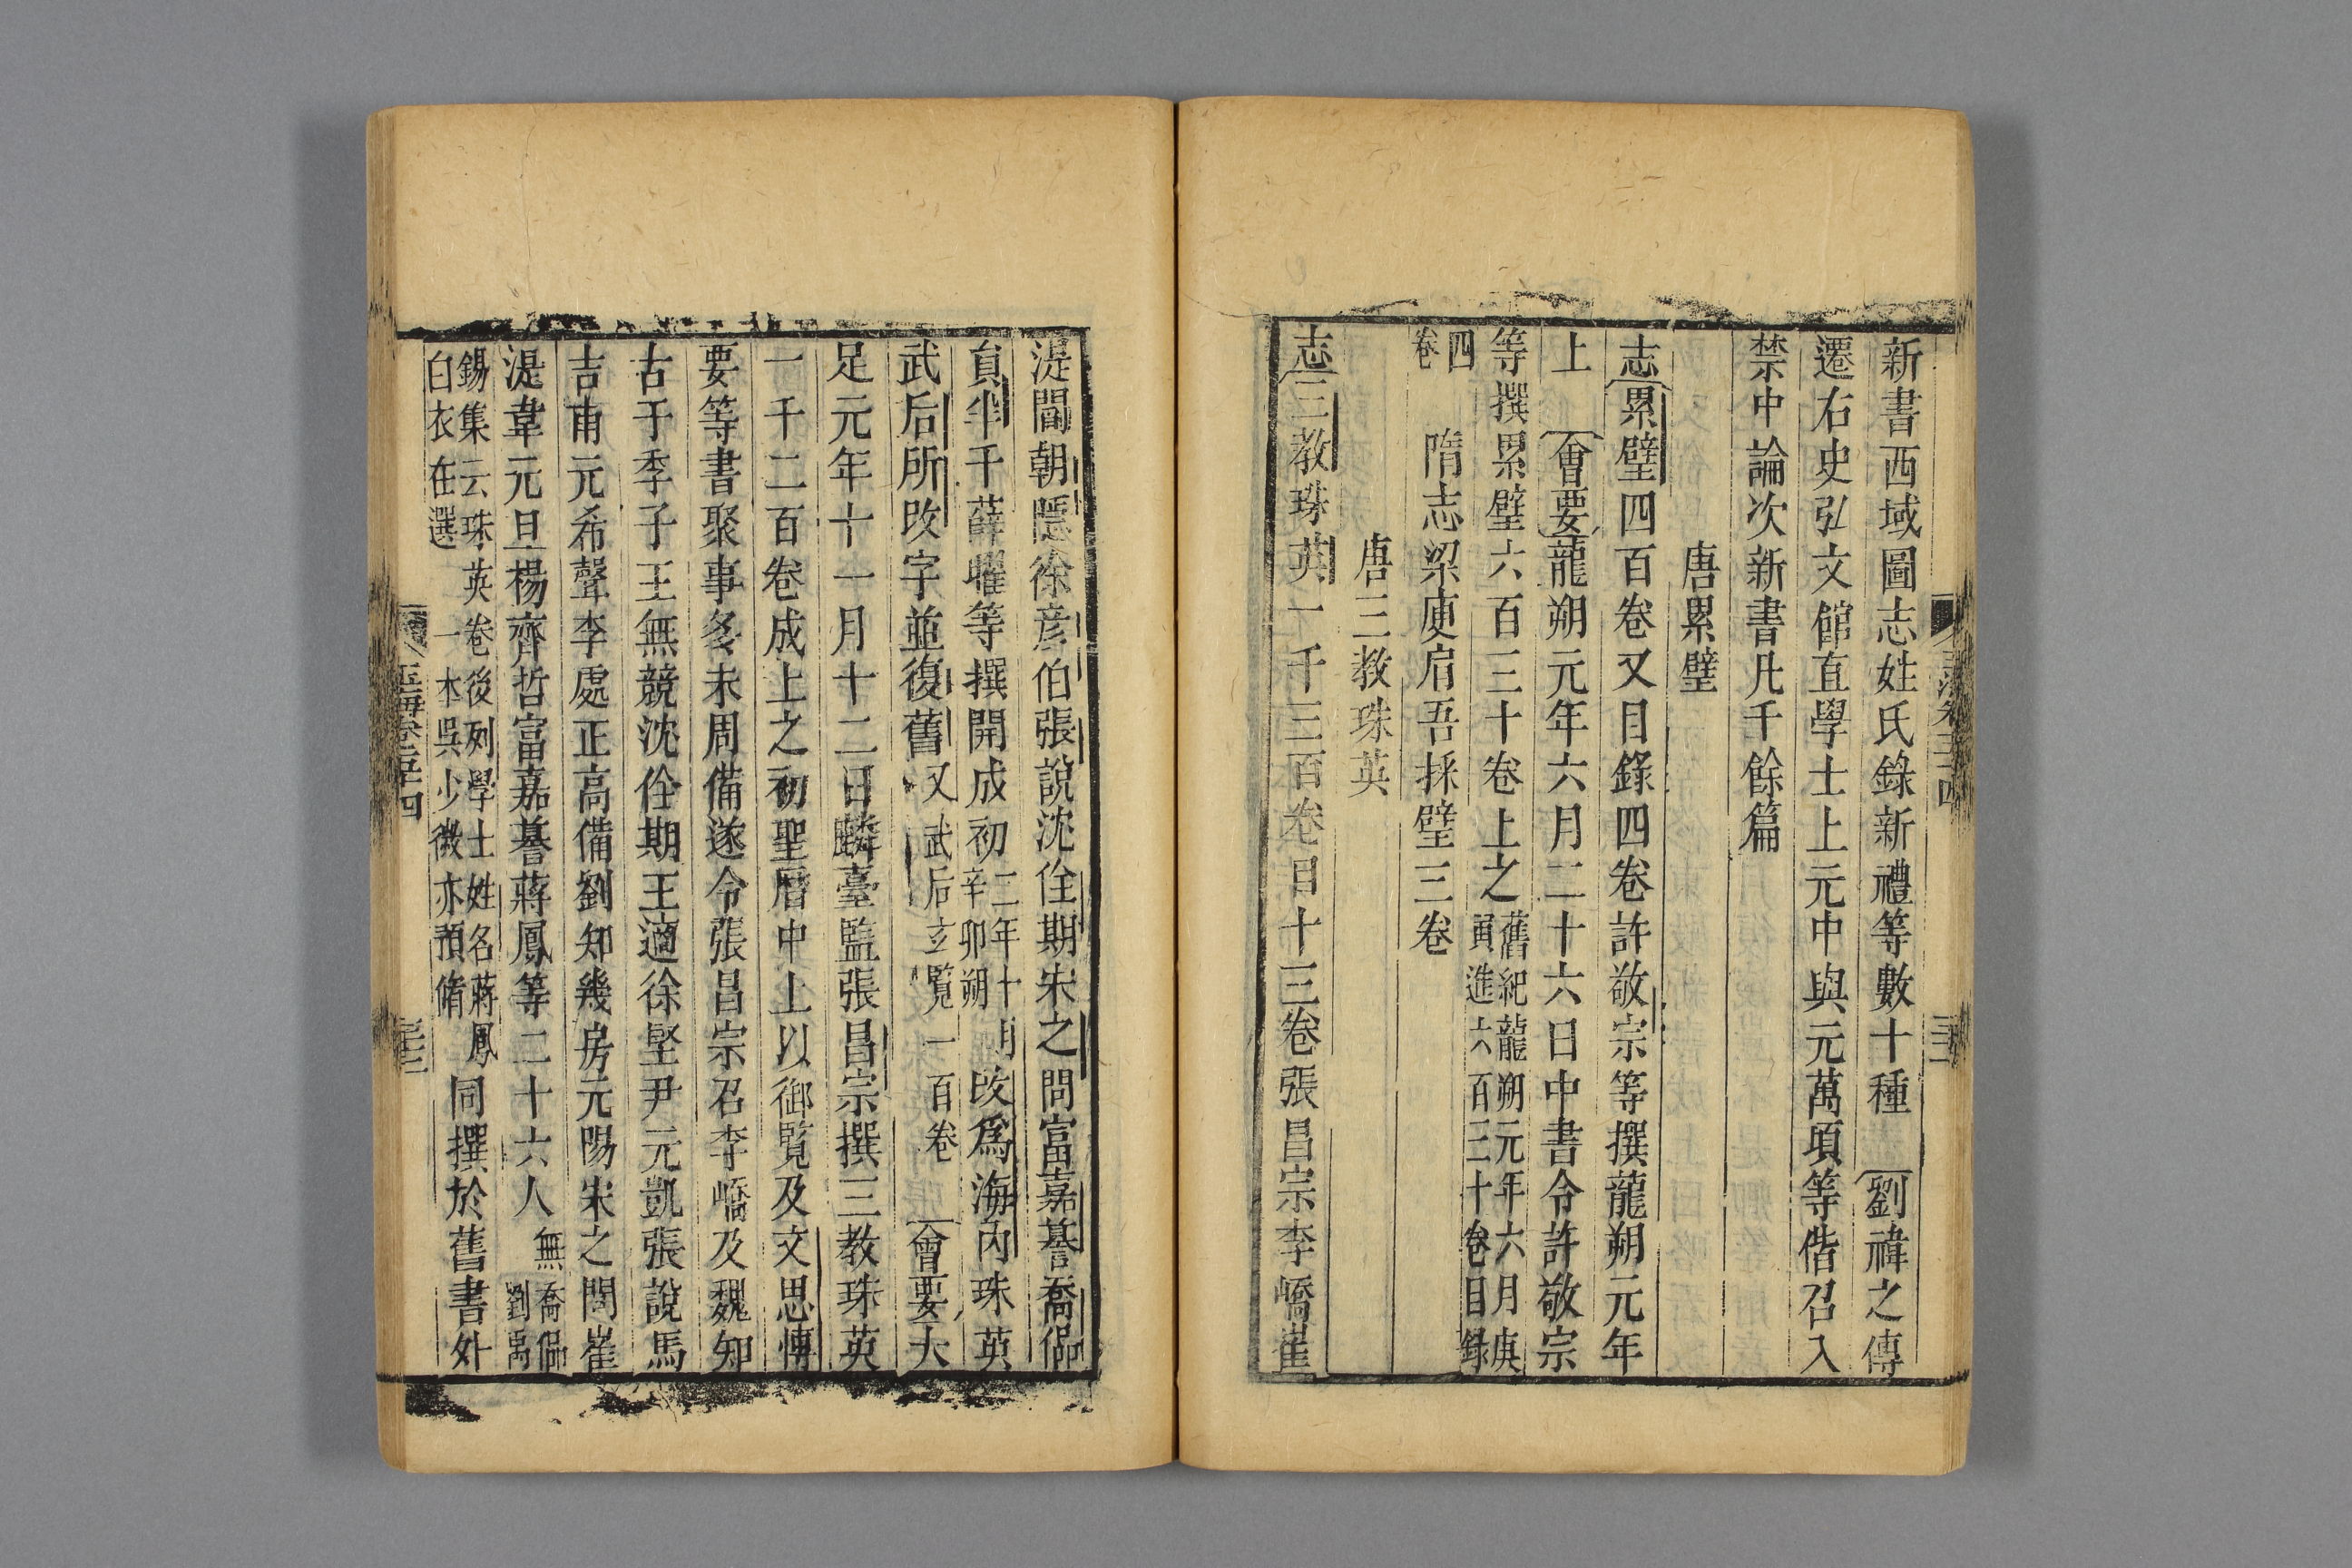 新書西域圖志姓氏錄新禮等數十種劉禕之傳
遷右史弘文館直學士上元中與元萬頃等偕召入
禁中論次新書凡千餘篇
唐累璧
志累璧四百卷又目錄四卷許敬宗等撰龍朔元年
上會要龍朔元年六月二十六日中書令許敬宗
等撰累璧六百三十卷上之舊紀龍朔元年六月庚寅進六百三十卷目錄
四卷隋志梁庾肩吾採璧三卷
唐三教珠英
志三教珠英一千三百卷目十三卷張昌宗李嶠崔
湜閻朝隱徐彥伯張說沈佺期宋之問富嘉謩喬侃
員半千薛曜等撰開成初二年十月辛卯朔改爲海內珠英
武后所改字並復舊又武后玄覽一百卷會要大
足元年十一月十二日麟臺監張昌宗撰三教珠英
一千二百卷成上之初聖曆中上以御覽及文思博
要等書聚事多未周備遂令張昌宗召李嶠及魏知
古于季子王無競沈佺期王適徐堅尹元凱張說馬
吉甫元希聲李處正高備劉知幾房元陽宋之問崔
湜韋元旦楊齊哲富嘉謩蔣鳳等二十六人無喬侃劉禹
錫集云珠英卷後列學士姓名蔣鳳白衣在選一本吳少微亦預脩同撰於舊書外
玉海卷五十四